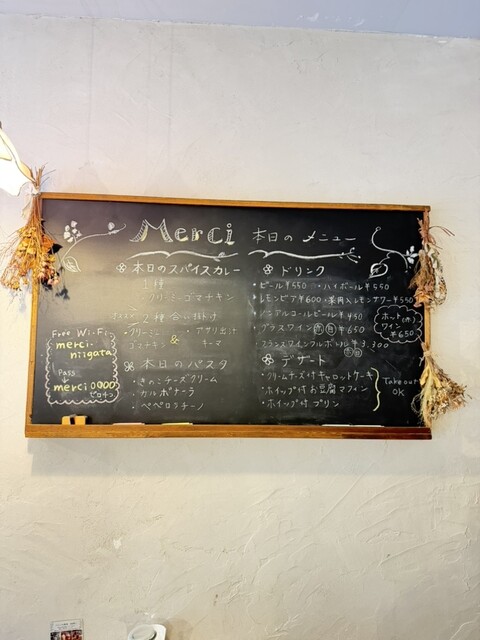 Merci 本日の メニュー
本日のスパイスカレー
1種
・クリーミーゴマチキン
2種合い掛け
・クリーミーゴマチキン
&
・アサリ出汁キーマ
本日のパスタ
・きのこチーズクリーム
・カルボナーラ
・ペペロンチーノ
Free Wi-Fi
merci-
niigata
Pass
↓
merci0000
ゼロ4つ
ドリンク
・ビール¥550 ・ハイボール¥550
・レモンビア¥600 ・果肉入レモンサワー¥550
・ノンアルコールビール¥450
・グラスワイン 赤 白 ¥650
・フランスワインフルボトル¥3,300
赤 白
ホット(赤)
ワイン
¥650
デザート
・クリームチーズ付キャロットケーキ
・ホイップ付お豆腐マフィン
・ホイップ付プリン
Take out
OK